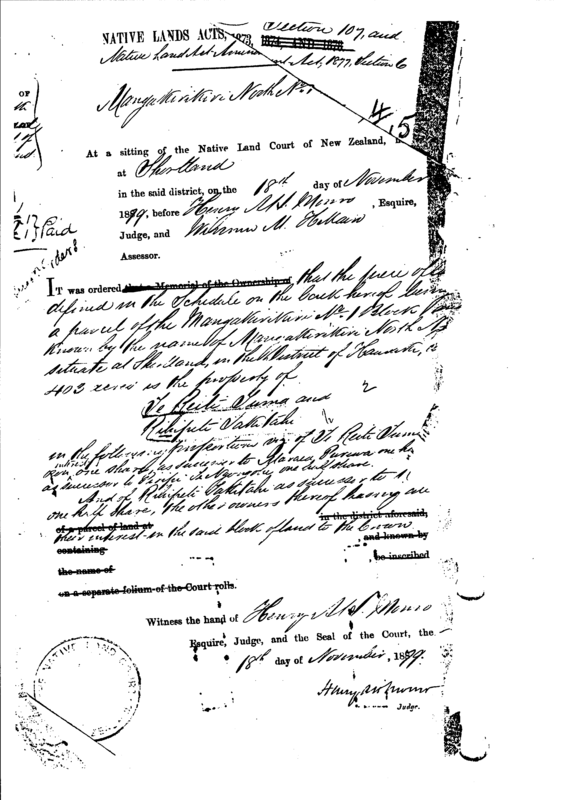 NATIVE LANDS ACTS, 1873, Section 107, and
1874, AND 1878
Native Land Act Amendment Act, 1877, Section 6
Mangakirikiri North No 1
45
OF
At a sitting of the Native Land Court of New Zealand,
at Shortland
in the said district, on the 18th day of November
1879, before Henry A. H. Monro, Esquire,
Judge, and
Assessor.
£1 Paid
IT was ordered that a Memorial of the Ownership of that the piece of
defined in the Schedule on the back hereof being
a parcel of the Mangakirikiri No 1 Block
known by the name of Mangakirikiri North
situate at Shortland, in the District of Hauraki,
403 acres is the property of
Te Reiti Tuma and
Rihipeti Taketahi
2
in the following proportions viz of Te Reiti Tuma
one share, as successor to
as successor to one half share.
And of Rihipeti Taketahi as successor to
one half share, the other owners thereof having
of a parcel of land at in the district aforesaid,
their interest in the said block of land to the Crown
containing and known by
the name of be inscribed
on a separate folium of the Court rolls.
Witness the hand of Henry A. H. Monro
Esquire, Judge, and the Seal of the Court, the
18th day of November, 1879.
Judge.
NATIVE LAND COURT